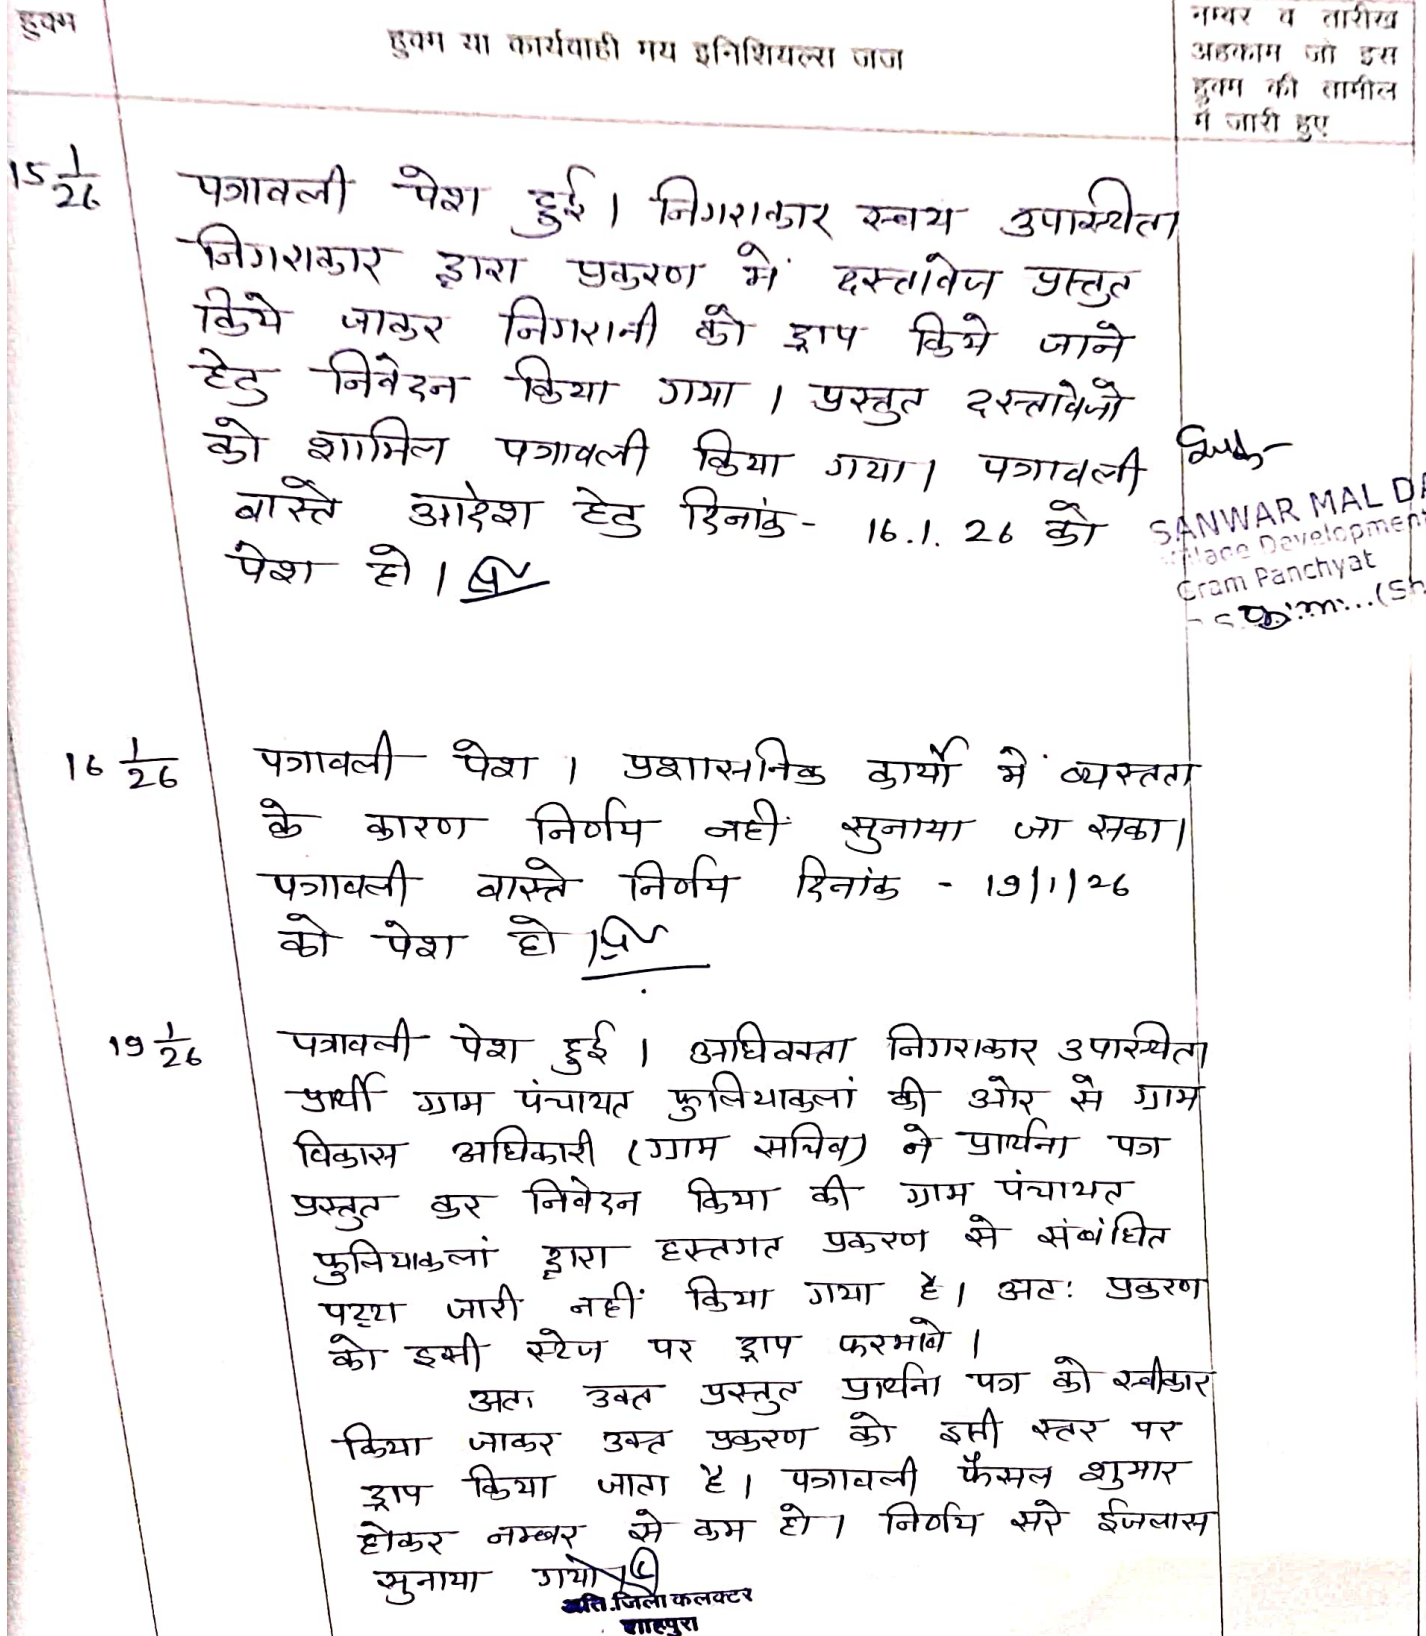 हुक्म
हुक्म या कार्यवाही मय इनिशियल्स जज
नम्बर व तारीख
अहकाम जो इस
हुक्म की तामील
में जारी हुए
15 1/26
पत्रावली पेश हुई। निगराकार स्वयं उपस्थित।
निगराकार द्वारा प्रकरण में दस्तावेज प्रस्तुत
किये जाकर निगरानी को ड्राप किये जाने
हेतु निवेदन किया गया। प्रस्तुत दस्तावेजो
को शामिल पत्रावली किया गया। पत्रावली
वास्ते आदेश हेतु दिनांक- 16.1.26 को
पेश हो।
SANWAR MAL DA
Village Development
Gram Panchyat
(Sh
16 1/26
पत्रावली पेश। प्रशासनिक कार्यो में व्यस्तता
के कारण निर्णय नहीं सुनाया जा सका।
पत्रावली वास्ते निर्णय दिनांक - 19/1/26
को पेश हो।
19 1/26
पत्रावली पेश हुई। अधिवक्ता निगराकार उपस्थित।
प्रार्थी ग्राम पंचायत फुलियाकलां की ओर से ग्राम
विकास अधिकारी (ग्राम सचिव) ने प्रार्थना पत्र
प्रस्तुत कर निवेदन किया की ग्राम पंचायत
फुलियाकलां द्वारा हस्तगत प्रकरण से संबंधित
पट्टा जारी नहीं किया गया है। अतः प्रकरण
को इसी स्टेज पर ड्राप फरमावे।
अतः उक्त प्रस्तुत प्रार्थना पत्र को स्वीकार
किया जाकर उक्त प्रकरण को इसी स्तर पर
ड्राप किया जाता है। पत्रावली फैसल शुमार
होकर नम्बर से कम हो। निर्णय सरे ईजलास
सुनाया गया।
अति.जिला कलक्टर
शाहपुरा